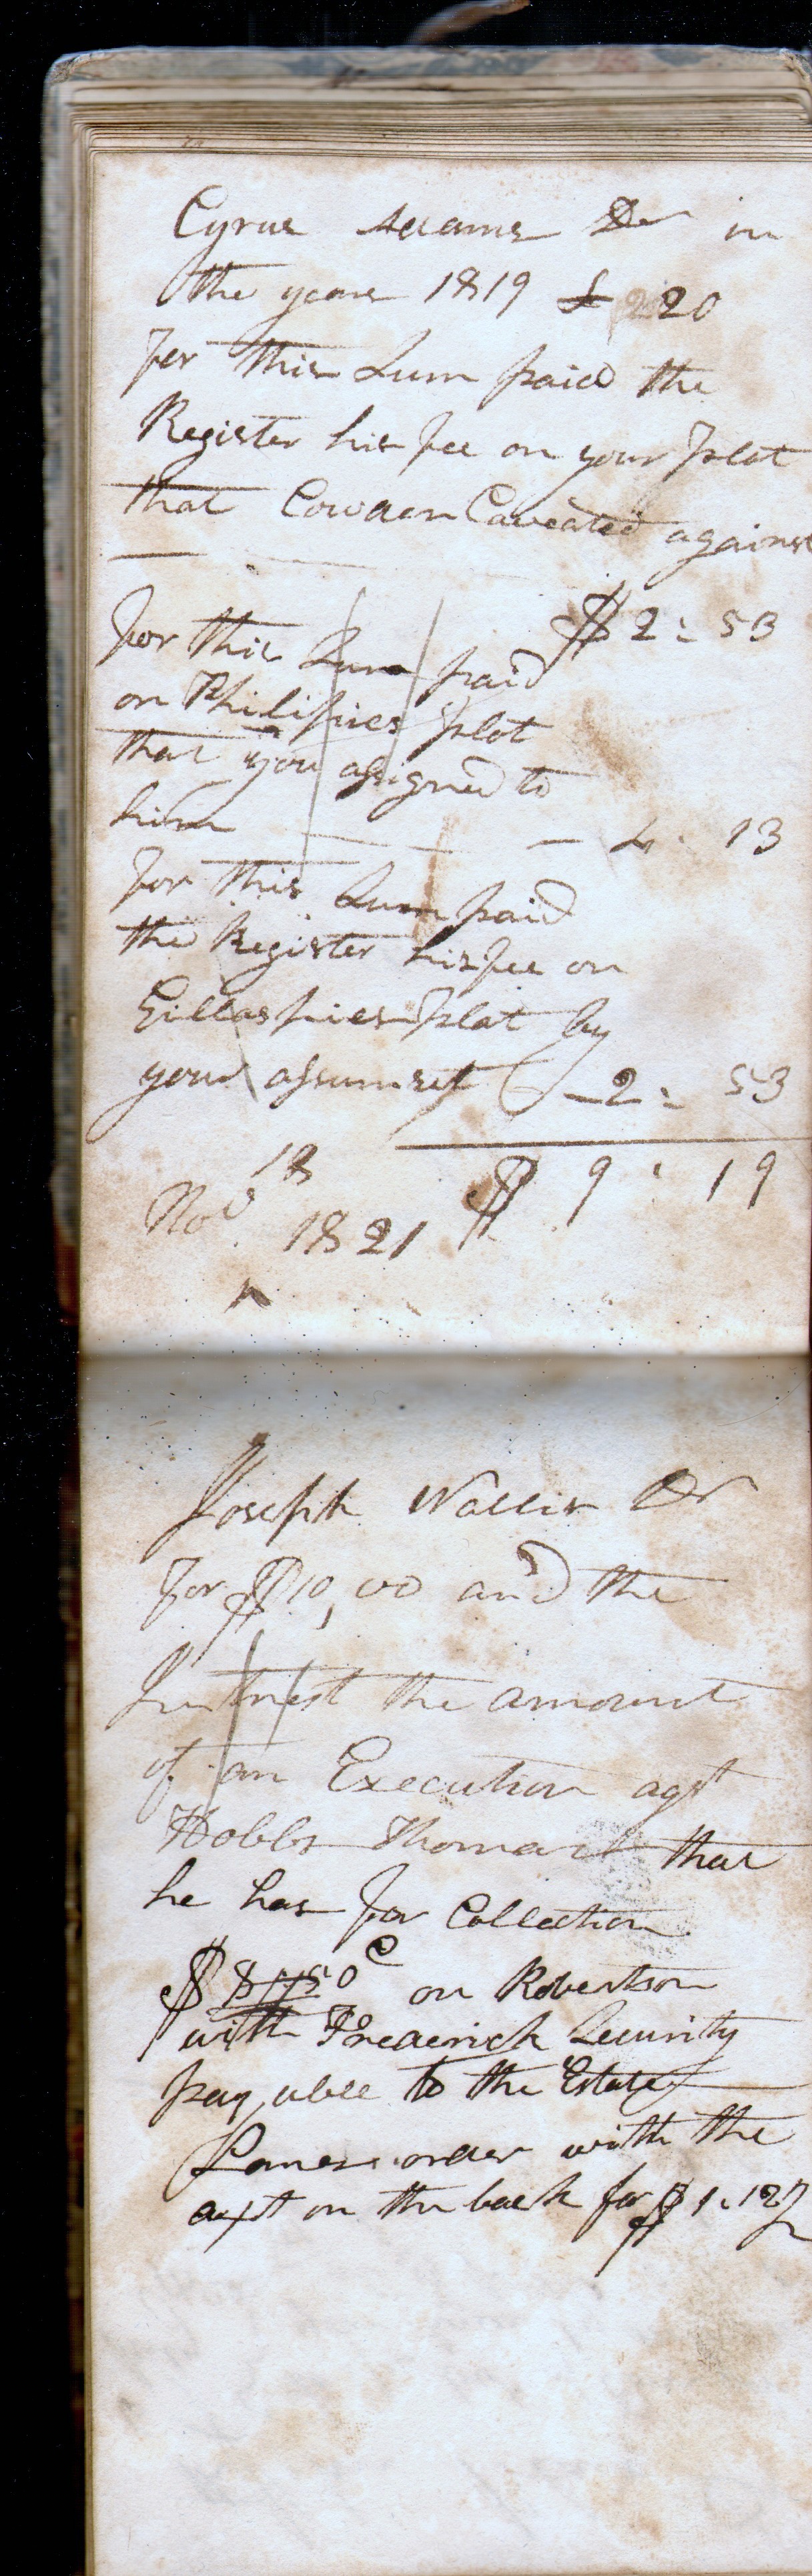 Cyrus Adams Dr in
the year 1819 £ 20
for this Sum paid the
Register his fee on your plat
that Cowden Caveated against
$ 2: 53
for this Sum paid
on Philipies plot
that you assigned to
him — — — 4. 13
for this Sum paid
the Register his fee on
Gillaspies plat by
your assumset — 2: 53
Nov 18 1821 $ 9: 19
Joseph Wallis Dr
for $10,00 and the
Intrest the amount
of an Execution agst
Hobbs Thomas that
he has for Collection
$ 50 c on Robertson
with Frederick Security
payable to the Estate
order with the
on the back for $1.12½